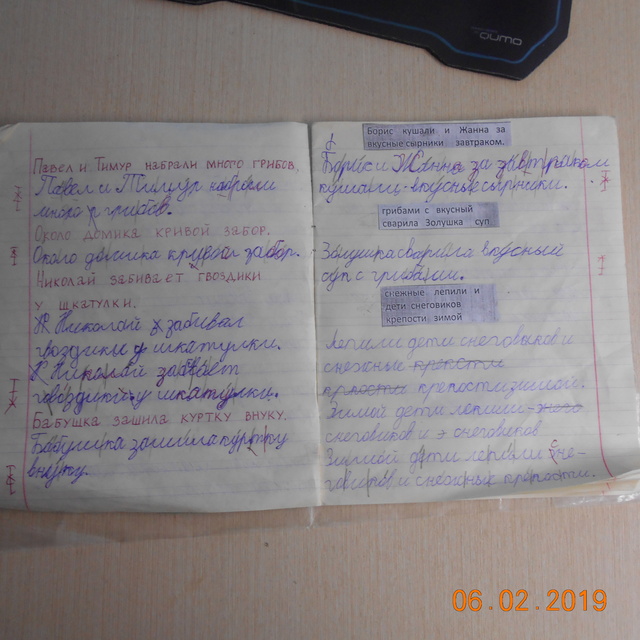 QUMO
Павел и Тимур набрали много грибов.
Павел и Тимур набрали
много грибов.
Около домика кривой забор.
Около домика кривой забор.
Николай забивает гвоздики
у шкатулки.
Николай забивал
гвоздики у шкатулки.
Николай забивает
гвоздики у шкатулки.
Бабушка зашила куртку внуку.
Бабушка зашила куртку
внуку.
Борис кушали и Жанна за
вкусные сырники завтраком.
Борис и Жанна за завтраком
кушали вкусные сырники.
грибами с вкусный
сварила Золушка суп.
Золушка сварила вкусный
суп с грибами.
снежные лепили и
дети снеговиков
крепости зимой
Лепили дети снеговиков и
снежные
крепости зимой.
Зимой дети лепили
снеговиков и снеговиков
Зимой дети лепили сне-
говиков и снежных крепости.
06.02.2019